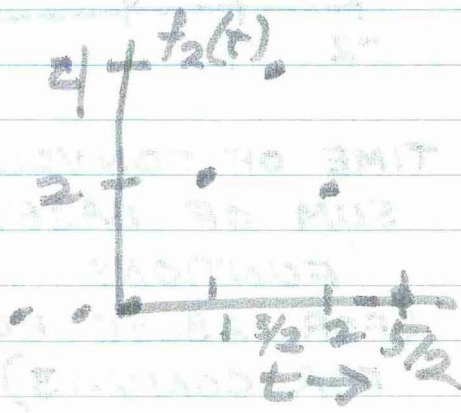 f₂(t)
4
2
1 3/2 2 5/2
t →